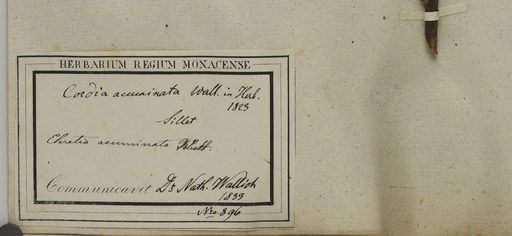 HERBARIUM REGIUM MONACENSE
Cordia acuminata Wall. in Herb.
1823
Sillet
Ehretia acuminata
Communicavit Dr. Nath. Wallich
1833
Nro 896